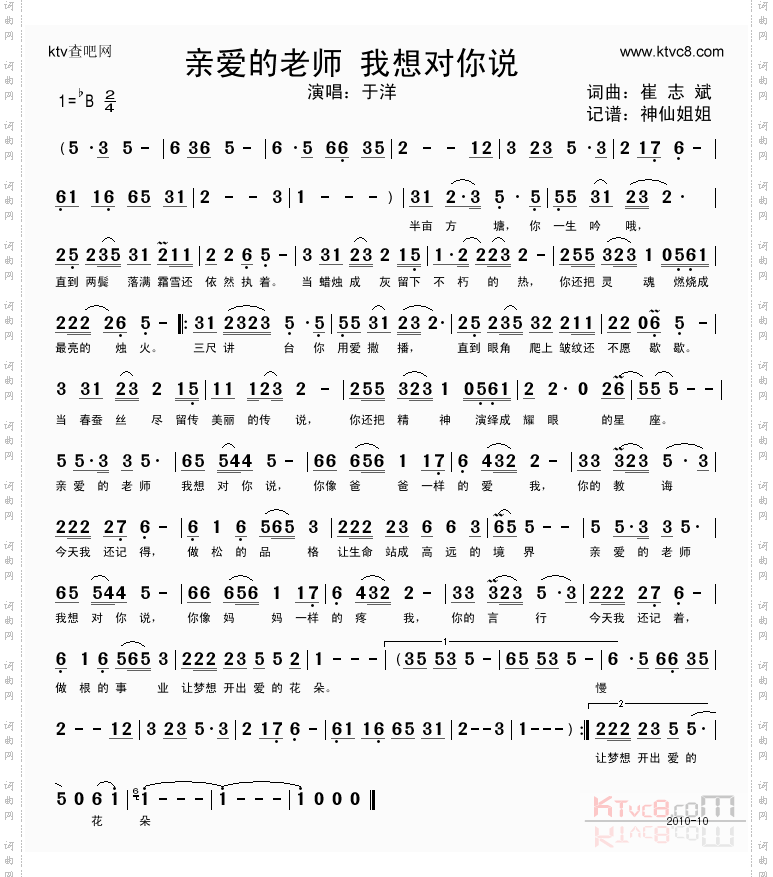 ktv查吧网
亲爱的老师 我想对你说
www.ktvc8.com
1=♭B 2/4
演唱：于洋
词曲：崔 志 斌
记谱：神仙姐姐
(5 · 3 5 - | 6 36 5 - | 6 · 5 66 35 | 2 - - 12 | 3 23 5 · 3 | 2 17 6 - |
61 16 65 31 | 2 - - 3 | 1 - - - ) | 31 2·3 5 · 5 | 55 31 23 2 · |
半亩 方 塘， 你 一生 吟 哦，
25 235 31 211 | 2 2 6 5 - | 3 31 23 2 15 | 1·2 223 2 - | 255 323 1 0561 |
直到 两鬓 落满 霜雪还 依 然 执 着。 当 蜡烛 成 灰 留下 不 朽 的 热， 你还把 灵 魂 燃烧成
222 26 5 - ‖: 31 2323 5 · 5 | 55 31 23 2· | 25 235 32 211 | 22 06 5 - |
最亮的 烛 火。 三尺 讲 台 你 用爱 撒 播， 直到 眼角 爬上 皱纹还 不愿 歇 歇。
3 31 23 2 15 | 11 123 2 - | 255 323 1 0561 | 2 2· 0 26 | 55 5 - - |
当 春蚕 丝 尽 留传 美丽 的传 说， 你还把 精 神 演绎成 耀 眼 的星 座。
5 5·3 3 5· | 65 544 5 - | 66 656 1 17 | 6 432 2 - | 33 323 5 · 3 |
亲 爱 的 老 师 我想 对 你 说， 你像 爸 爸 一样 的 爱 我， 你的 教 诲
222 27 6 - | 6 1 6 565 3 | 222 23 6 6 3 | 65 5 - - | 5 5·3 3 5· |
今天我 还记 得， 做 松 的 品 格 让生命 站成 高 远 的 境 界 亲 爱 的 老 师
65 544 5 - | 66 656 1 17 | 6 432 2 - | 33 323 5 · 3 | 222 27 6 - |
我想 对 你 说， 你像 妈 妈 一样 的 疼 我， 你的 言 行 今天我 还记 着，
1
6 1 6 565 3 | 222 23 5 5 2 | 1 - - - | (35 53 5 - | 65 53 5 - | 6 · 5 66 35 |
做 根 的 事 业 让梦想 开出 爱 的 花 朵。 慢
2
2 - - 12 | 3 23 5·3 | 2 17 6 - | 61 16 65 31 | 2 - - 3 | 1 - - - ) :‖ 222 23 5 5· |
让梦想 开出 爱 的
5 0 6 1 | 6 1 - - - | 1 - - - | 1 0 0 0 ‖
花 朵
KTvc8.com
2010-10
词曲网